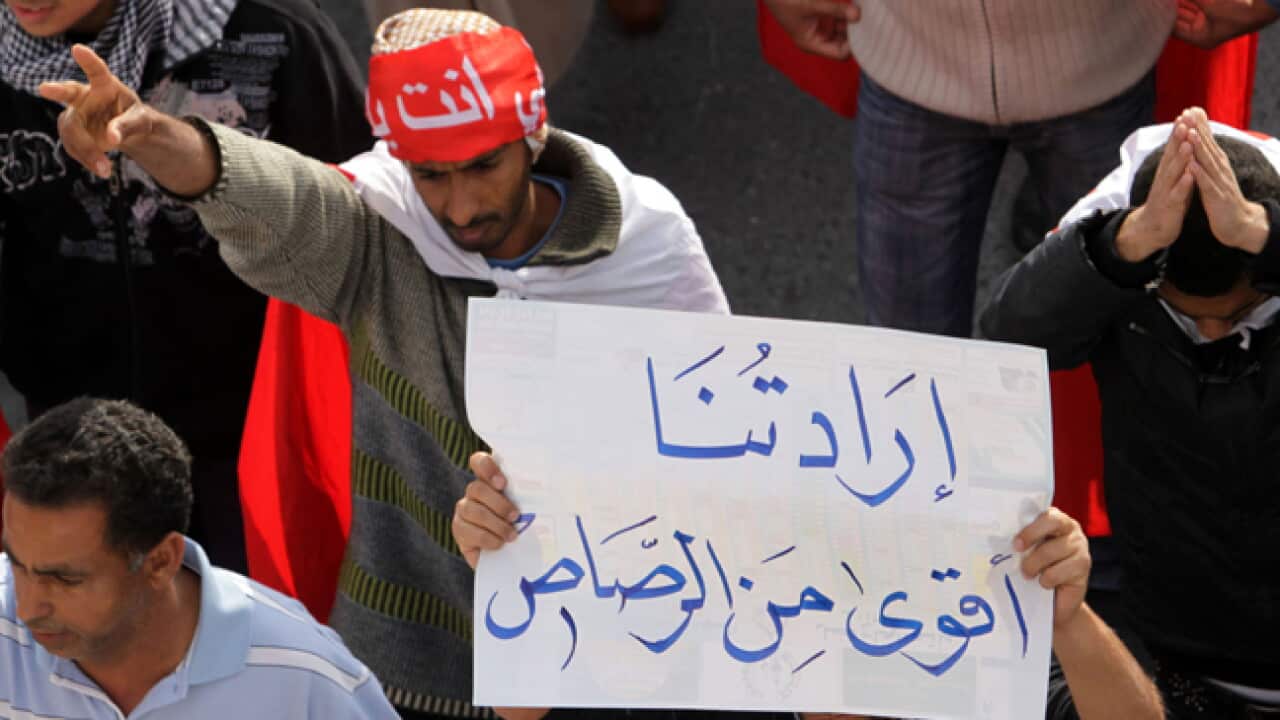 انت
إرادتُنا
أقوى مِن الرصّاصِ